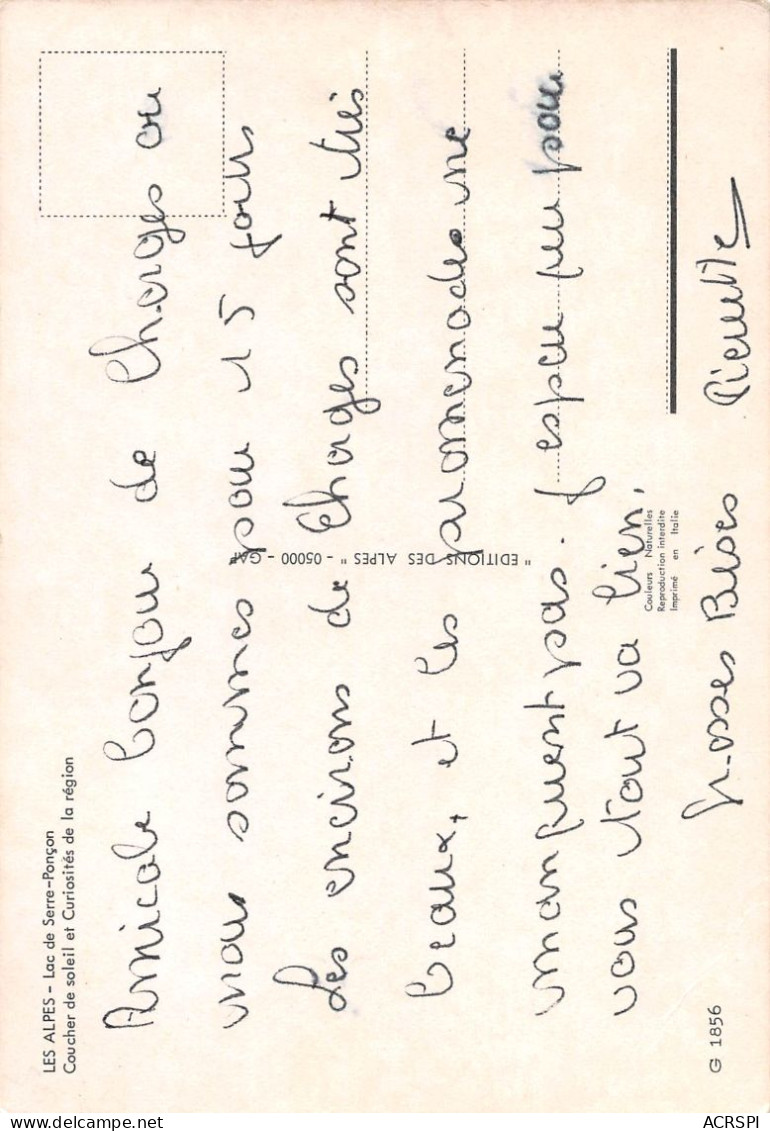 LES ALPES - Lac de Serre-Ponçon
Coucher de soleil et Curiosités de la région
Amicale bonjour de Chorges ou
nous sommes pour 15 jours
Les environs de Chorges sont très
beaux, et les promenades ne
manquent pas. J espere que pour
vous tout va bien,
grosses Bises Pierrette
" EDITIONS DES ALPES " - 05000 - GAP
Couleurs Naturelles
Reproduction interdite
Imprimé en Italie
G 1856
ACRSPI